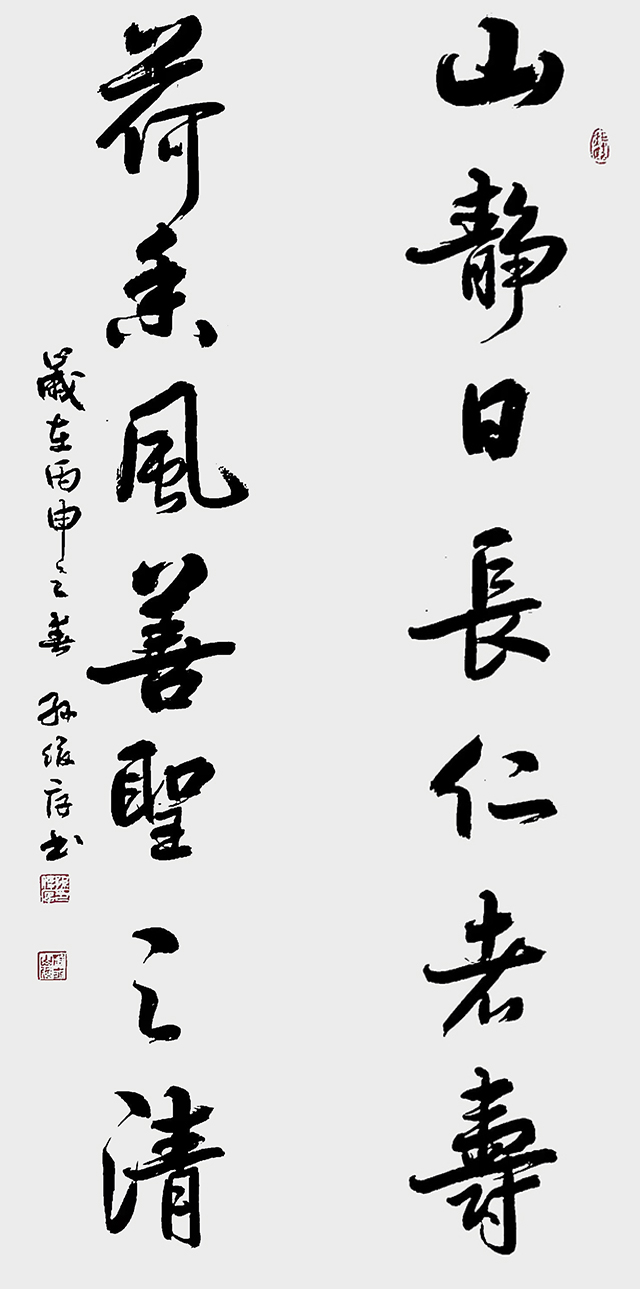 山靜日長仁者壽
荷香風善聖之清
歲在丙申之春 孫俊存书